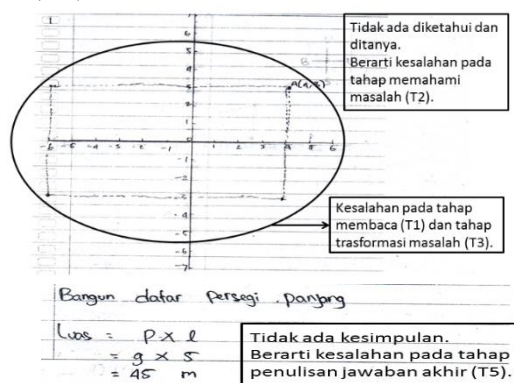 1
Tidak ada diketahui dan
ditanya.
Berarti kesalahan pada
tahap memahami
masalah (T2).
Kesalahan pada tahap
membaca (T1) dan tahap
trasformasi masalah (T3).
Bangun datar Persegi panjang
Luas = P x l
= 9 x 5
= 45 m
Tidak ada kesimpulan.
Berarti kesalahan pada tahap
penulisan jawaban akhir (T5).